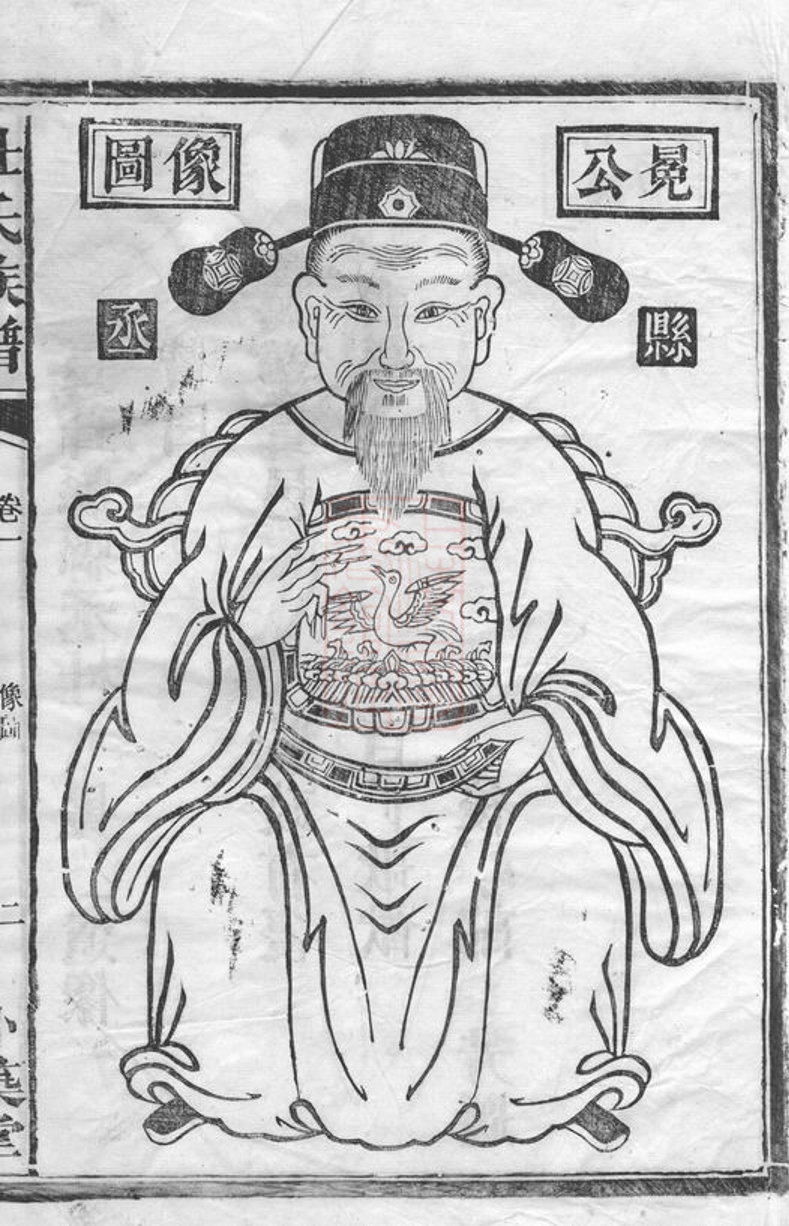 冕公
像圖
縣
丞
氏族譜
卷一
像圖
二
義堂